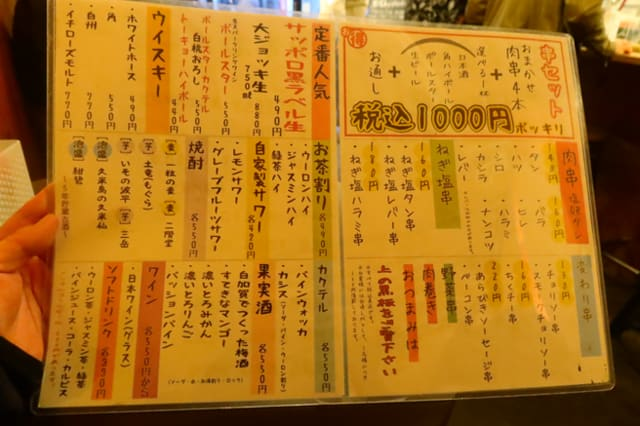 得
キセット
おまかせ
肉串4本
+
選べる一杯
日本酒
角ハイボール
ボールスター
生ビール
+
お通し
税込1000円ポッキリ
肉串
塩或タレ
140円
・タン
・ハツ
・シロ
・カシラ
・レバー
160円
・ヒレ
・ハラミ
・ナンコツ
ねぎ塩串
160円
・ねぎ塩タン串
・ねぎ塩レバー串
180円
・ねぎ塩ハラミ串
変わり串
・チョリソー串
・スモークチョリソー串
・ちくチー串
・あらびきソーセージ串
・ベーコン串
野菜串
肉巻き
おつまみは
上の黒板をご覧下さい
定番人気
サッポロ黒ラベル生
550円
大ジョッキ生
750ml 880円
ボールスター
550円
ボールスターカクテル
・白桃おろし 550円
トーキョーハイボール
440円
ウイスキー
・ホワイトホース 490円
・角 550円
・白州 770円
・イチローズモルト 770円
お茶割り 各490円
・ウーロンハイ
・ジャスミンハイ
・緑茶ハイ
自家製サワー
各420円
・レモンサワー
・グレープフルーツサワー
焼酎 各550円
麦 一粒の麦
麦 二階堂
芋 土竜(もぐら)
芋 いその波平
芋 三岳
泡盛 久米島の久米仙
泡盛 紺碧
カクテル 各550円
・パインウォッカ
・カシス(ソーダ・パイン・ウーロン割り)
果実酒 各550円
・白加賀でつくった梅酒
・すてきなマンゴー
・濃いとろみかん
・濃いとろりんご
・パッションパイン
(ソーダ・水・お湯割り・ロック)
ワイン 各550円から
・日本ワイン(グラス)
ソフトドリンク
各390円
・ウーロン茶・ジャスミン茶・緑茶
・パインジュース・コーラ・カルピス